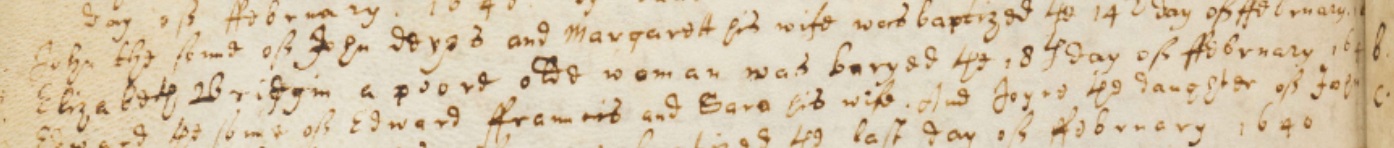 day of ffebruary 1640
John the sonne of John deyos and Margarett his wife was baptized the 14th day of ffebruary
Elizabeth Bridgin a poore olde woman was buryed the 18th day of ffebruary 164
Edward the sonne of Edward ffrancis and Sara his wife. And Joyce the daughter of John
the last day of ffebruary 1640
b.
c.